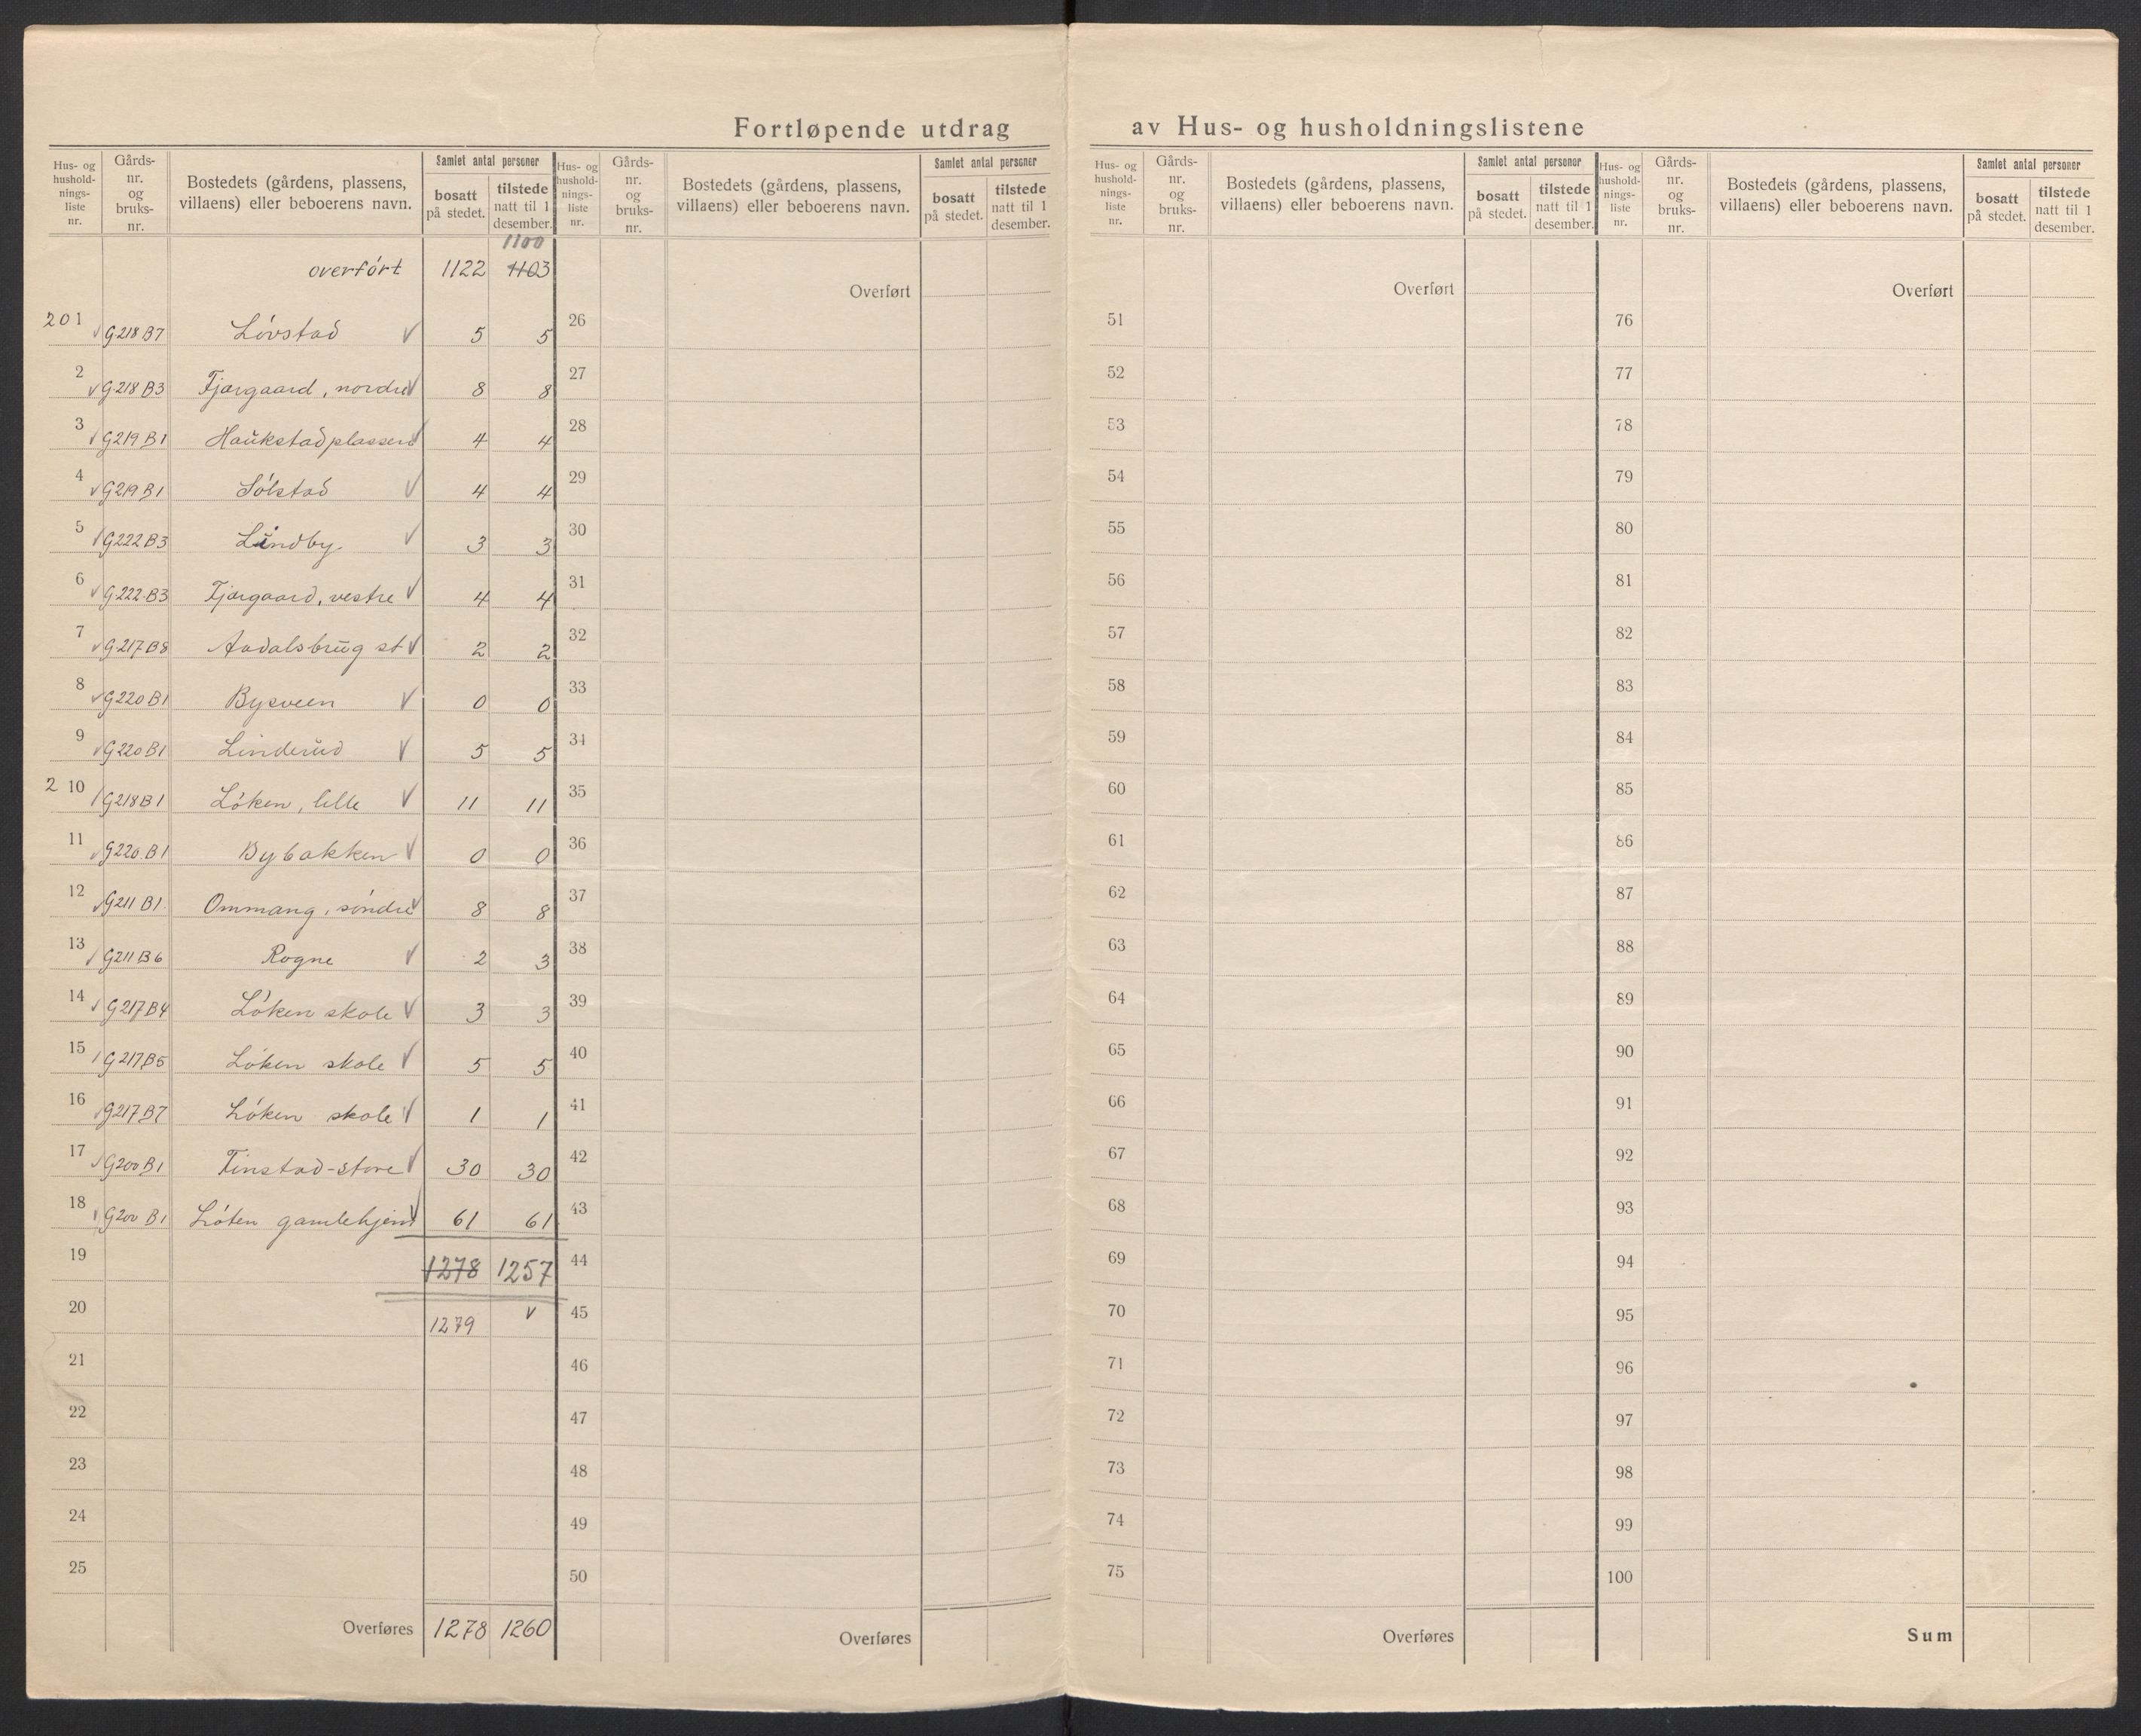 Fortløpende utdrag av Hus- og husholdningslistene
Hus- og husholdnings-liste nr. Gårds-nr. og bruks-nr. Bostedets (gårdens, plassens, villaens) eller beboerens navn. Samlet antal personer bosatt på stedet. tilstede natt til 1 desember.
Hus- og husholdnings-liste nr. Gårds-nr. og bruks-nr. Bostedets (gårdens, plassens, villaens) eller beboerens navn. Samlet antal personer bosatt på stedet. tilstede natt til 1 desember.
Hus- og husholdnings-liste nr. Gårds-nr. og bruks-nr. Bostedets (gårdens, plassens, villaens) eller beboerens navn. Samlet antal personer bosatt på stedet. tilstede natt til 1 desember.
Hus- og husholdnings-liste nr. Gårds-nr. og bruks-nr. Bostedets (gårdens, plassens, villaens) eller beboerens navn. Samlet antal personer bosatt på stedet. tilstede natt til 1 desember.
1100
overført 1122 1103
201 G218 B7 Løvstad 5 5
2 G218 B3 Fjærgaard, nordre 8 8
3 G219 B1 Haukstadplassen 4 4
4 G219 B1 Sølstad 4 4
5 G222 B3 Lindby 3 3
6 G222 B3 Fjærgaard, vestre 4 4
7 G217 B8 Aadalsbrug st 2 2
8 G220 B1 Bysveen 0 0
9 G220 B1 Linderud 5 5
210 G218 B1 Løken, lille 11 11
11 G220 B1 Bybakken 0 0
12 G211 B1 Ommang, søndre 8 8
13 G211 B6 Rogne 2 3
14 G217 B4 Løken skole 3 3
15 G217 B5 Løken skole 5 5
16 G217 B7 Løken skole 1 1
17 G200 B1 Finstad-store 30 30
18 G200 B1 Løten gamlehjem 61 61
19 1278 1257
20 1279
21
22
23
24
25
Overføres 1278 1260
Overført
26
27
28
29
30
31
32
33
34
35
36
37
38
39
40
41
42
43
44
45
46
47
48
49
50
Overføres
Overført
51
52
53
54
55
56
57
58
59
60
61
62
63
64
65
66
67
68
69
70
71
72
73
74
75
Overføres
Overført
76
77
78
79
80
81
82
83
84
85
86
87
88
89
90
91
92
93
94
95
96
97
98
99
100
Sum